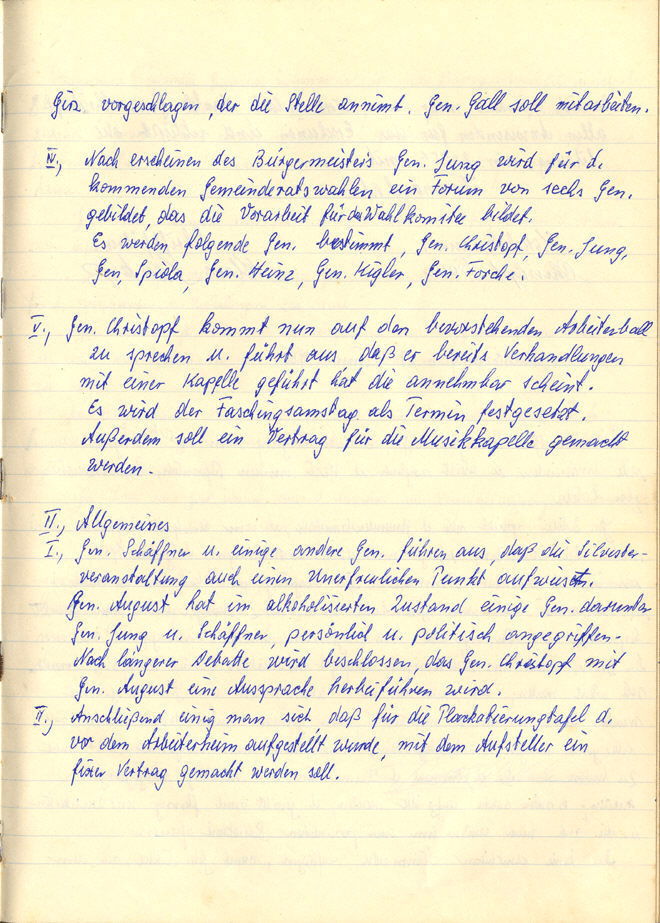 Girz vorgeschlagen, der die Stelle annimt. Gen. Gall soll mitarbeiten.
IV., Nach erscheinen des Bürgermeisters Gen. Jung wird für d.
kommenden Gemeinderatswahlen ein Forum von sechs Gen.
gebildet, das die Vorarbeit für das Wahlkomitee bildet.
Es werden folgende Gen. bestimmt, Gen. Christopf, Gen. Jung,
Gen, Spiola, Gen. Heinz, Gen. Kigler, Gen. Forche.
V., Gen. Christopf kommt nun auf den bevorstehenden Arbeiterball
zu sprechen u. führt aus, daß er bereits Verhandlungen
mit einer Kapelle geführt hat die annehmbar scheint.
Es wird der Faschingsamstag als Termin festgesetzt.
Außerdem soll ein Vertrag für die Musikkapelle gemacht
werden.
VI., Allgemeines
I., Gen. Schäffner u. einige andere Gen. führen aus, daß die Silvester-
veranstaltung auch einen Unerfreulichen Punkt aufweist.
Gen. August hat im alkoholisierten Zustand einige Gen. darunter
Gen. Jung u. Schäffner, persönlich u. politisch angegriffen.
Nach längerer Debatte wird beschlossen, das Gen. Christopf mit
Gen. August eine Aussprache herbeiführen wird.
II., Anschließend einig man sich daß für die Plackatierungtafel d.
vor dem Arbeiterheim aufgestellt wurde, mit dem Aufsteller ein
fixer Vertrag gemacht werden soll.